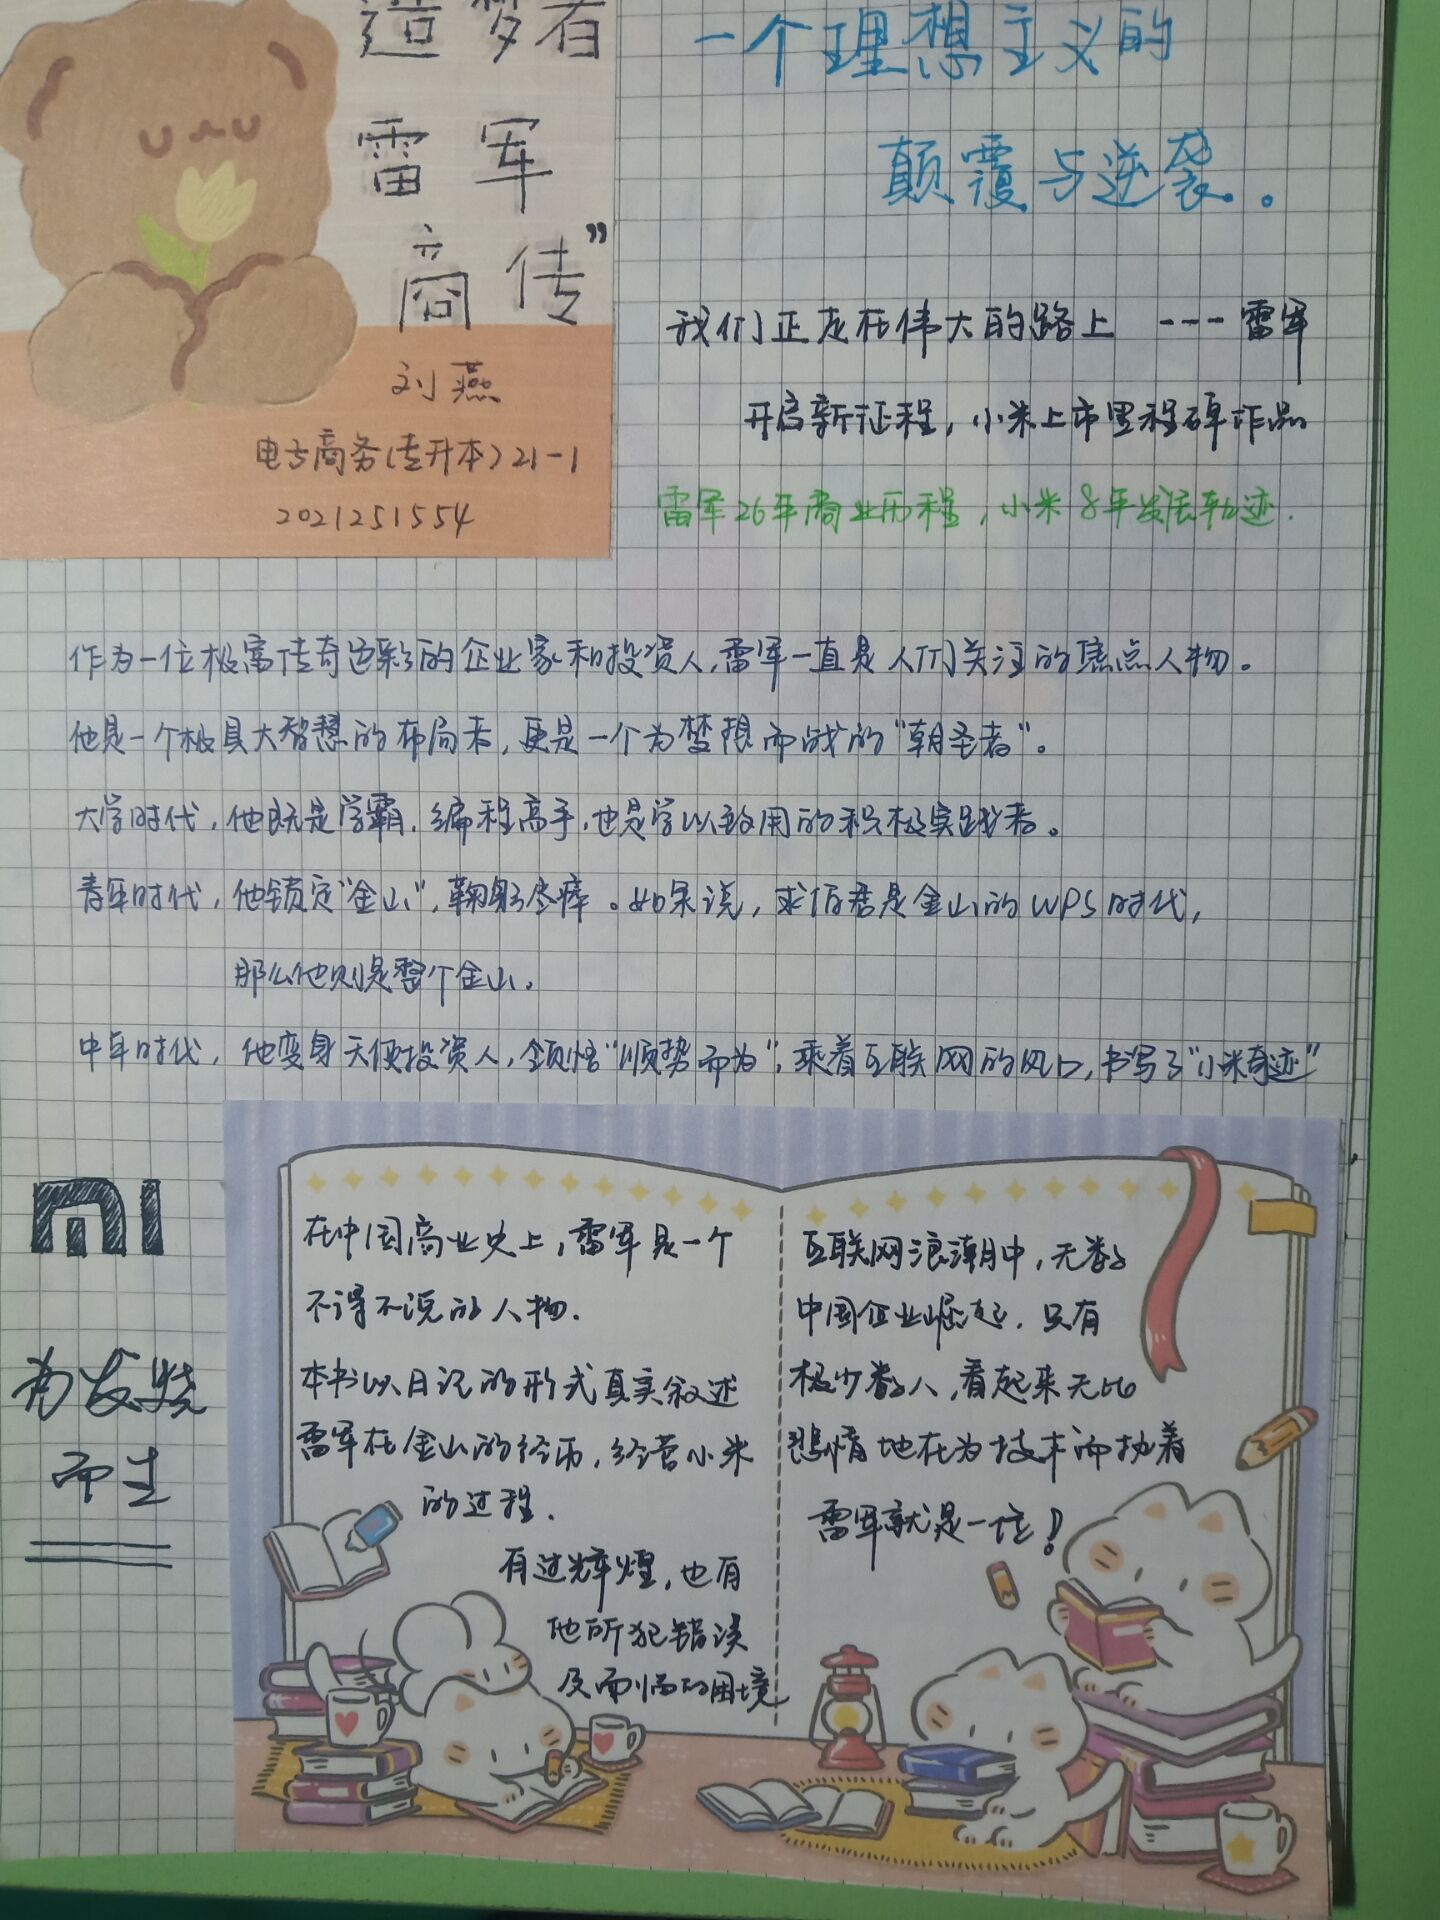 造梦者
雷军
商传”
刘燕
电子商务(专升本)21-1
2021251554
一个理想主义的
颠覆与逆袭..
我们正走在伟大的路上 ---雷军
开启新征程，小米上市里程碑作品
雷军26年商业历程，小米8年发展轨迹.
作为一位极富传奇色彩的企业家和投资人，雷军一直是人们关注的焦点人物。
他是一个极具大智慧的布局者，更是一个为梦想而战的“朝圣者”。
大学时代，他既是学霸，编程高手，也是学以致用的积极实践者。
青年时代，他锁定“金山”，鞠躬尽瘁。如果说，求伯君是金山的WPS时代，
那么他则是整个金山。
中年时代，他变身天使投资人，领悟“顺势而为”，乘着互联网的风口，书写了“小米奇迹”
MI
为发烧
而生
在中国商业史上，雷军是一个
不得不说的人物.
本书以日记的形式真实叙述
雷军在金山的经历，经营小米
的过程.
有过辉煌，也有
他所犯错误
及面临的困境
互联网浪潮中，无数
中国企业崛起．只有
极少数人，看起来无比
悲情地在为技术而执着
雷军就是一位！